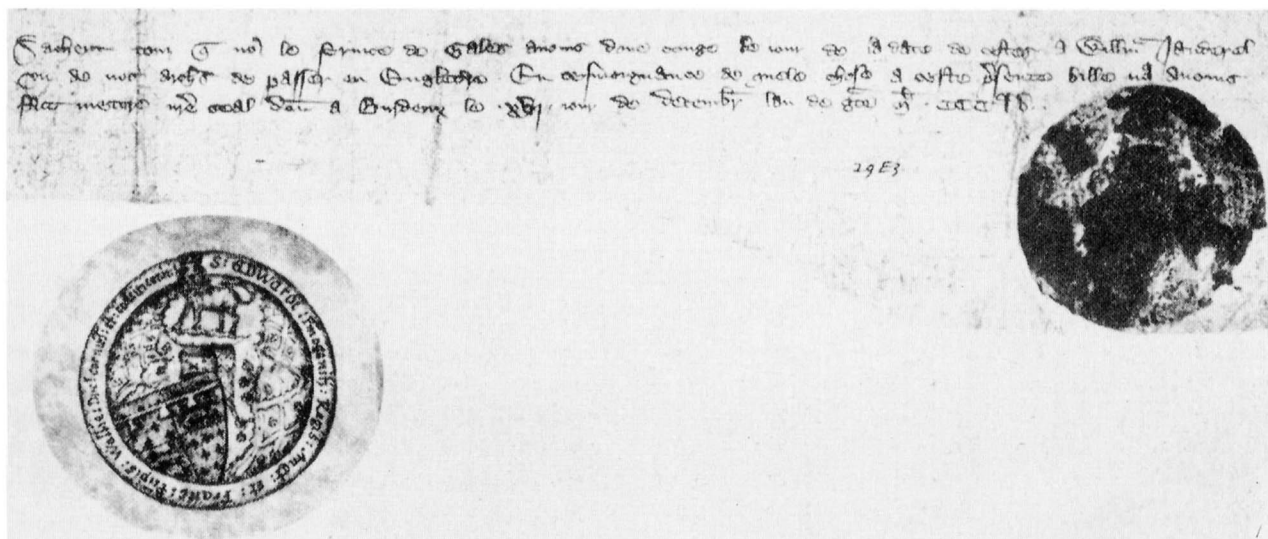 Sachent touz q̃ no9 le Prince de Gales avons done conge le iour de la date de cestes a Willm̃ Jauderel
un de noz archs̃ de passer en Engletere En tesmoignance de quele chose a ceste p̃sente bille no9 avons
fait mettre nr̃e seal Don̄ a Burdeux le xvj iour de decembr̃ lan de gr̃ce mˡ CCC lv
29E3
S: EDWARDI: Regis: Angl: et: Franc: Wallie: Duc: Cornub: et: